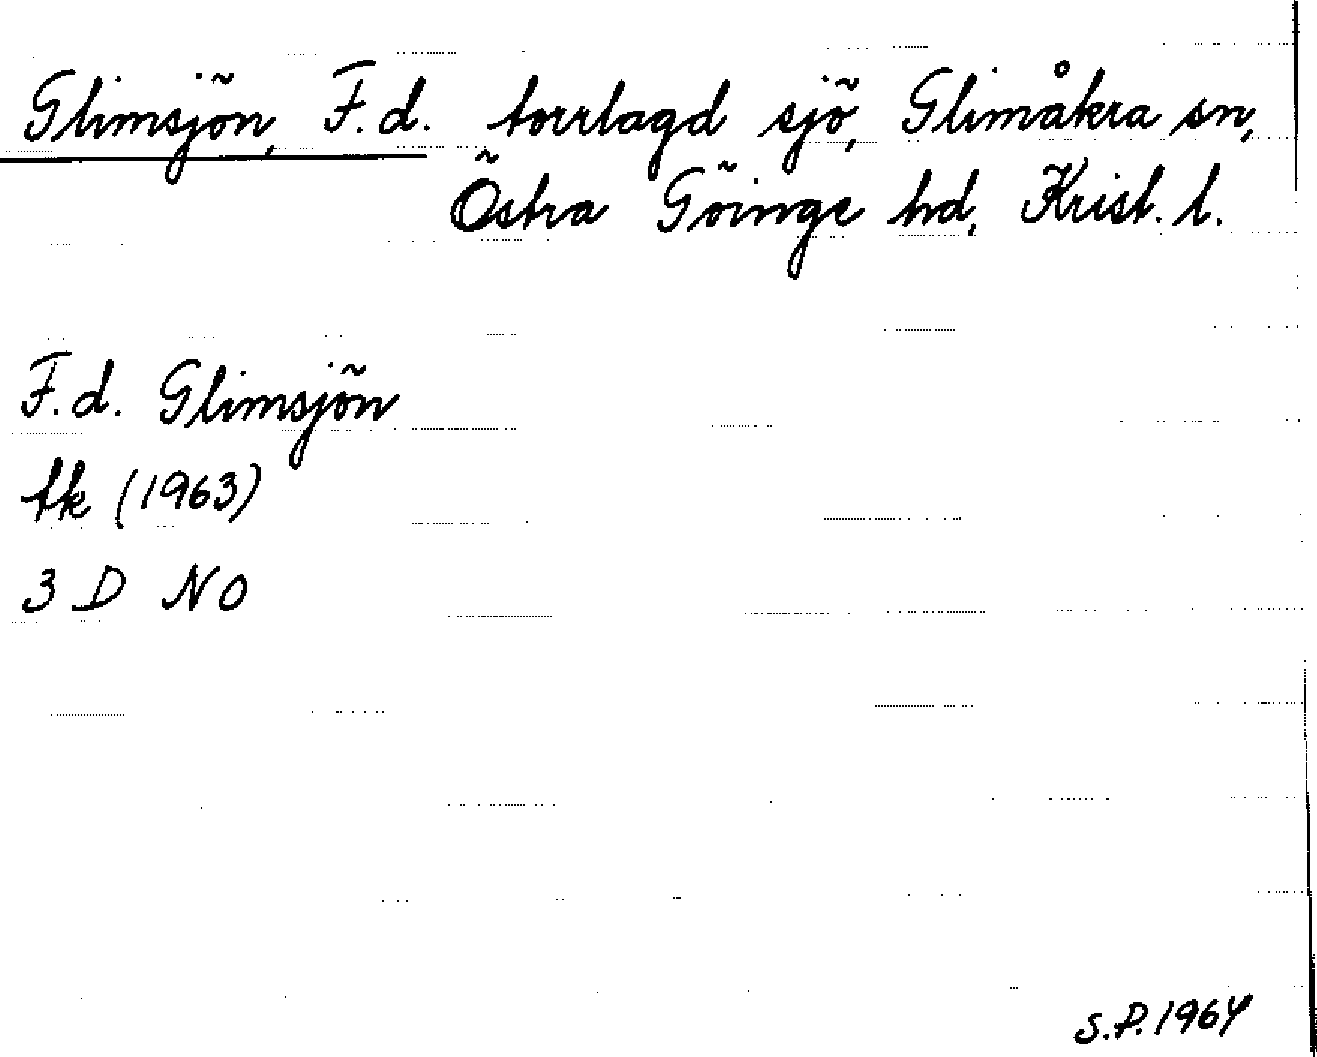 Glimsjön, F.d. torrlagd sjö, Glimåkra sn,
Östra Göinge hd, Krist. l.
F.d. Glimsjön
tk (1963)
3 D NO
S.P. 1964